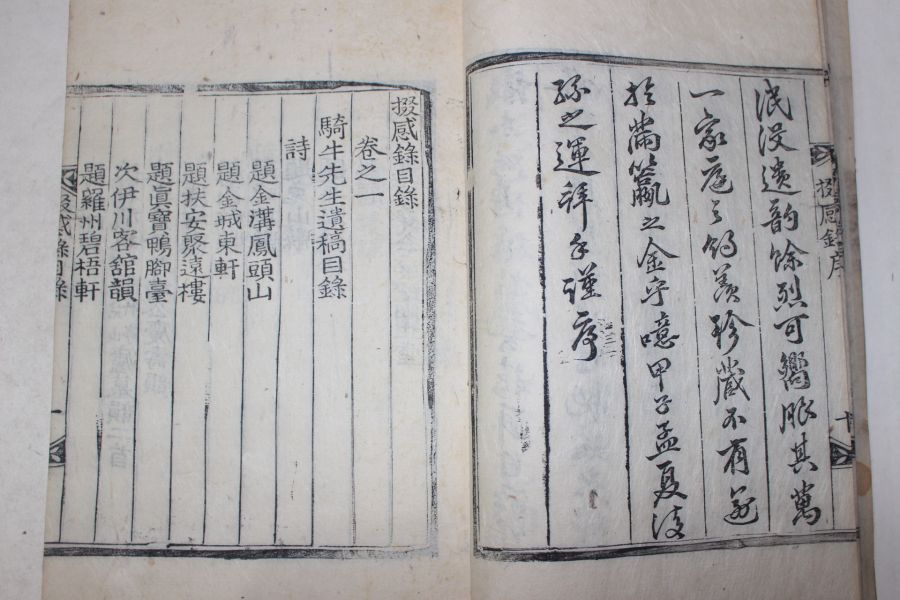 泯沒遺韵馀烈可嚮脹其萬
一家庭之
珍藏不有
於籯之金乎噫甲子孟夏
孫之運拜手謹序
掇感錄序
掇感錄目錄
卷之一
騎牛先生遺稿目錄
詩
題金溝鳳頭山
題金城東軒
題扶安聚遠樓
題眞寶鴨腳臺
次伊川客舘韻
題羅州碧梧軒
掇感錄目錄
一